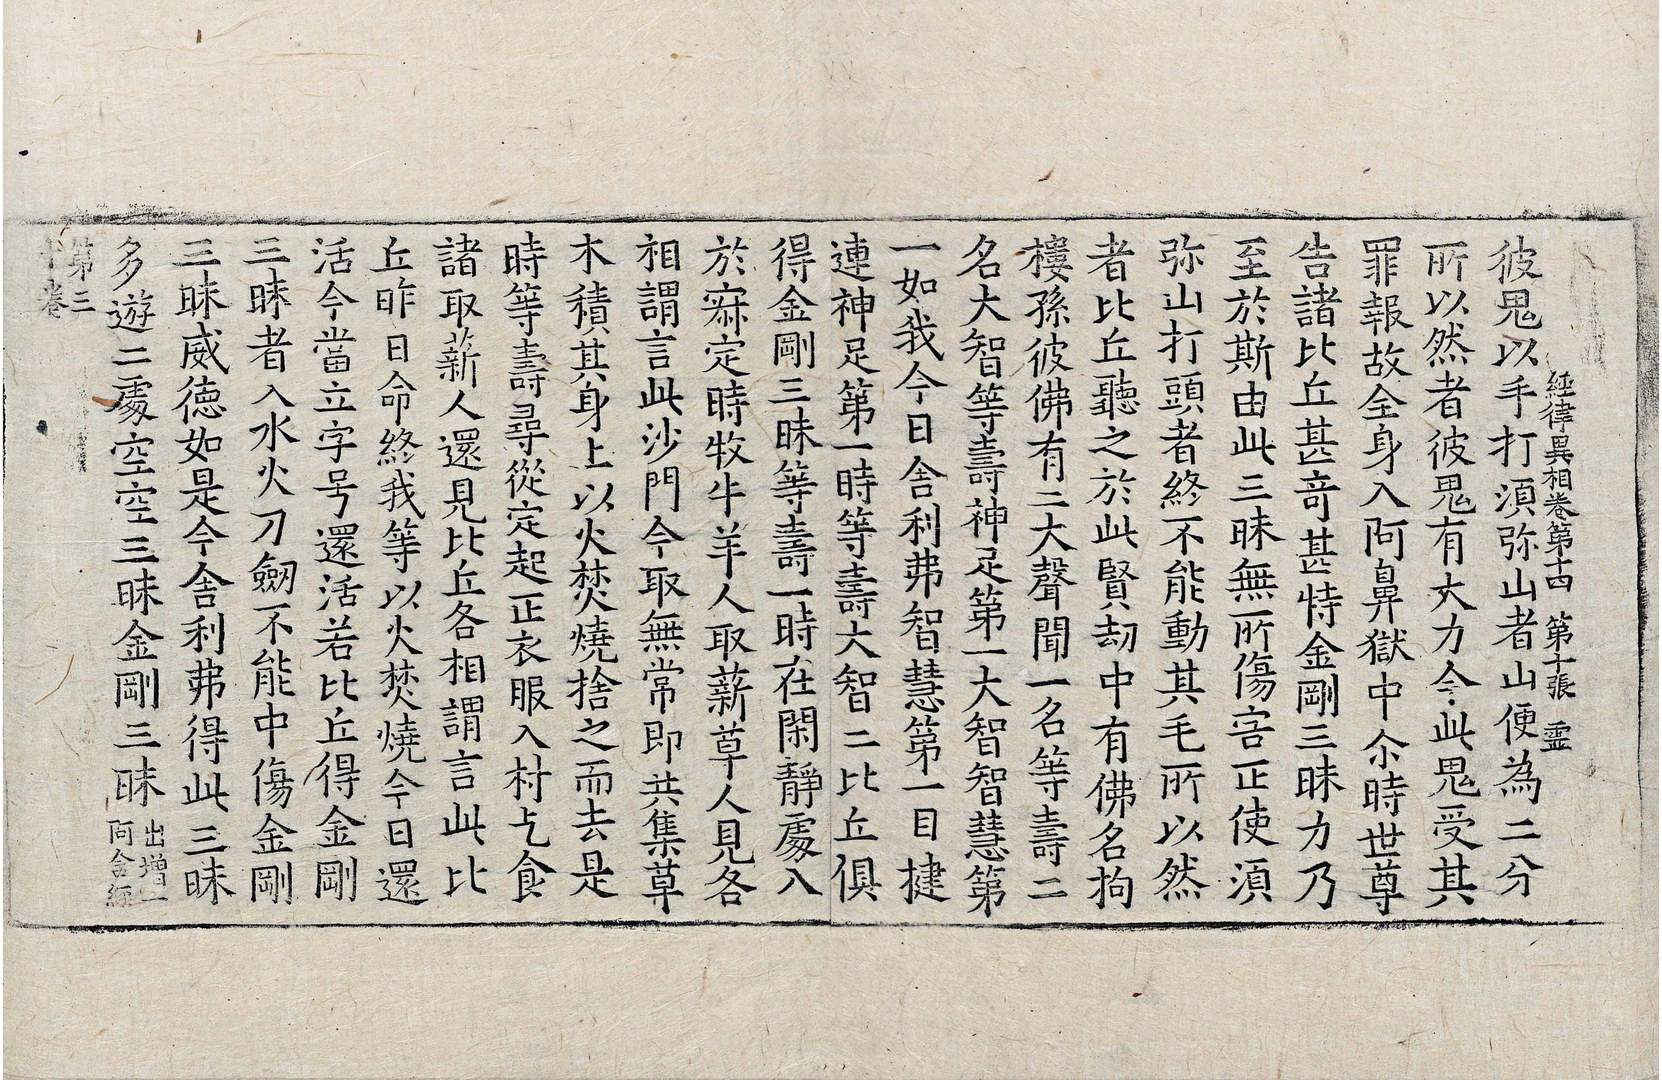 經律異相卷第十四　第十張　靈
彼鬼以手打湏弥山者山便為二分
所以然者彼鬼有大力今此鬼受其
罪報故全身入阿鼻獄中尒時世尊
告諸比丘甚竒甚特金剛三昧力乃
至於斯由此三昧無所傷害正使湏
弥山打頭者終不能動其毛所以然
者比丘聽之於此賢劫中有佛名拘
樓孫彼佛有二大聲聞一名等壽二
名大智等壽神足第一大智智慧第
一如我今日舍利弗智慧第一目揵
連神足第一時等壽大智二比丘俱
得金剛三昧等壽一時在閑靜處入
於㝛定時牧牛羊人取薪草人見各
相謂言此沙門今取無常即共集草
木積其身上以火焚燒捨之而去是
時等壽尋從定起正衣服入村乞食
諸取薪人還見比丘各相謂言此比
丘昨日命終我等以火焚燒今日還
活今當立字号還活若比丘得金剛
三昧者入水火刀劒不能中傷金剛
三昧威德如是今舍利弗得此三昧
多遊二處空空三昧金剛三昧 出增一
阿含經
第三
十卷